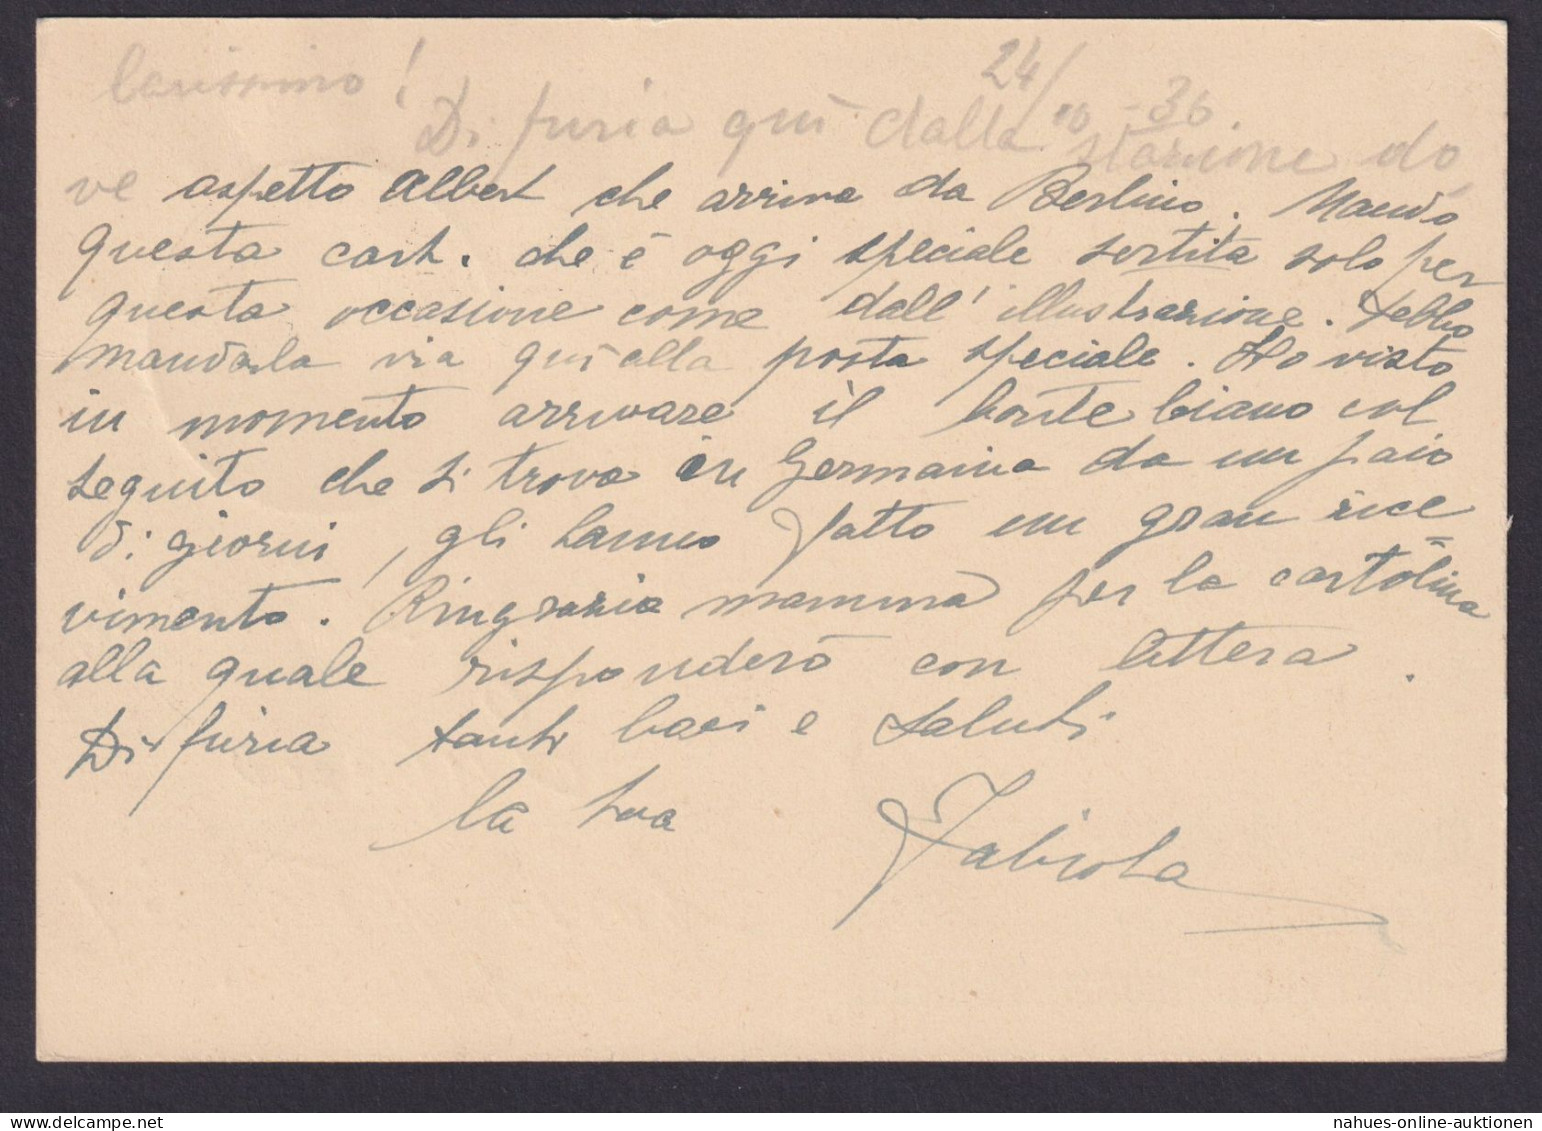 Carissimo!
24/10-36
Di furia quì dalla stazione do-
ve aspetto Albert che arriva da Berlino. Mando
questa cart. che è oggi speciale sortita solo per
questa occasione come dall'illustrazione. Debbo
mandarla via quì alla posta speciale. Ho visto
in momento arrivare il conte Ciano col
seguito che si trova in Germania da un paio
di giorni, gli hanno fatto un gran rice=
vimento. Ringrazia mamma per la cartolina
alla quale risponderò con lettera.
Di furia tanti baci e saluti
la tua
Fabiola
nahues-online-auktionen